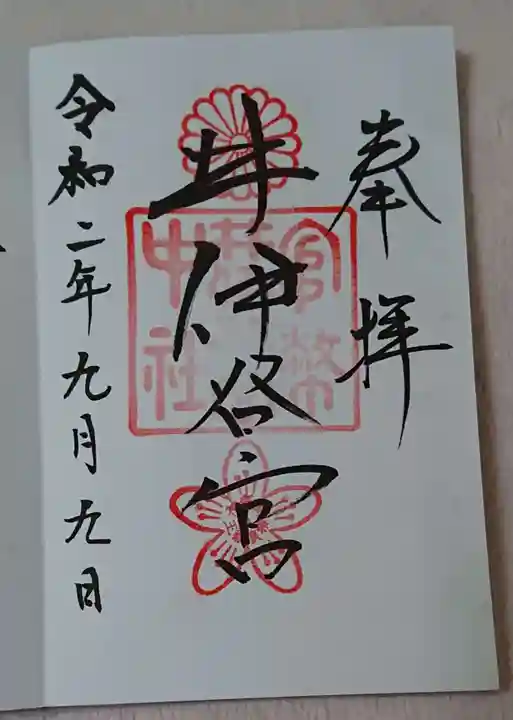 奉拝
井伊谷宮
令和二年九月九日
官幣
中社